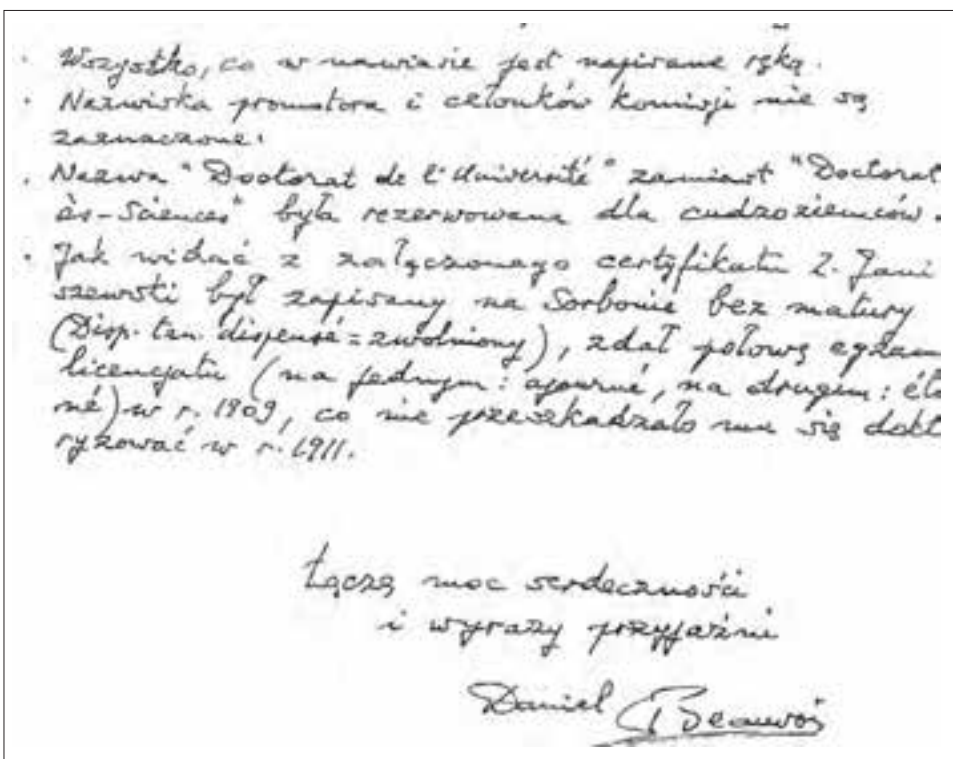 · Wszystko, co w nawiasie jest napisane ręką.
· Nazwiska promotora i członków komisji nie są
zaznaczone.
· Nazwa "Doctorat de l'Université" zamiast "Doctorat
ès-Sciences" była rezerwowana dla cudzoziemców.
· Jak widać z załączonego certyfikatu Z. Jani
szewski był zapisany na Sorbonie bez matury
(Disp. tzn. dispensé = zwolniony), zdał połowę egzam
licencjatu (na jednym: ajourné, na drugim:
né) w r. 1909, co nie przeszkadzało mu się dokt
ryzować w r. 1911.
Łączę moc serdeczności
i wyrazy przyjaźni
Daniel Beauvois